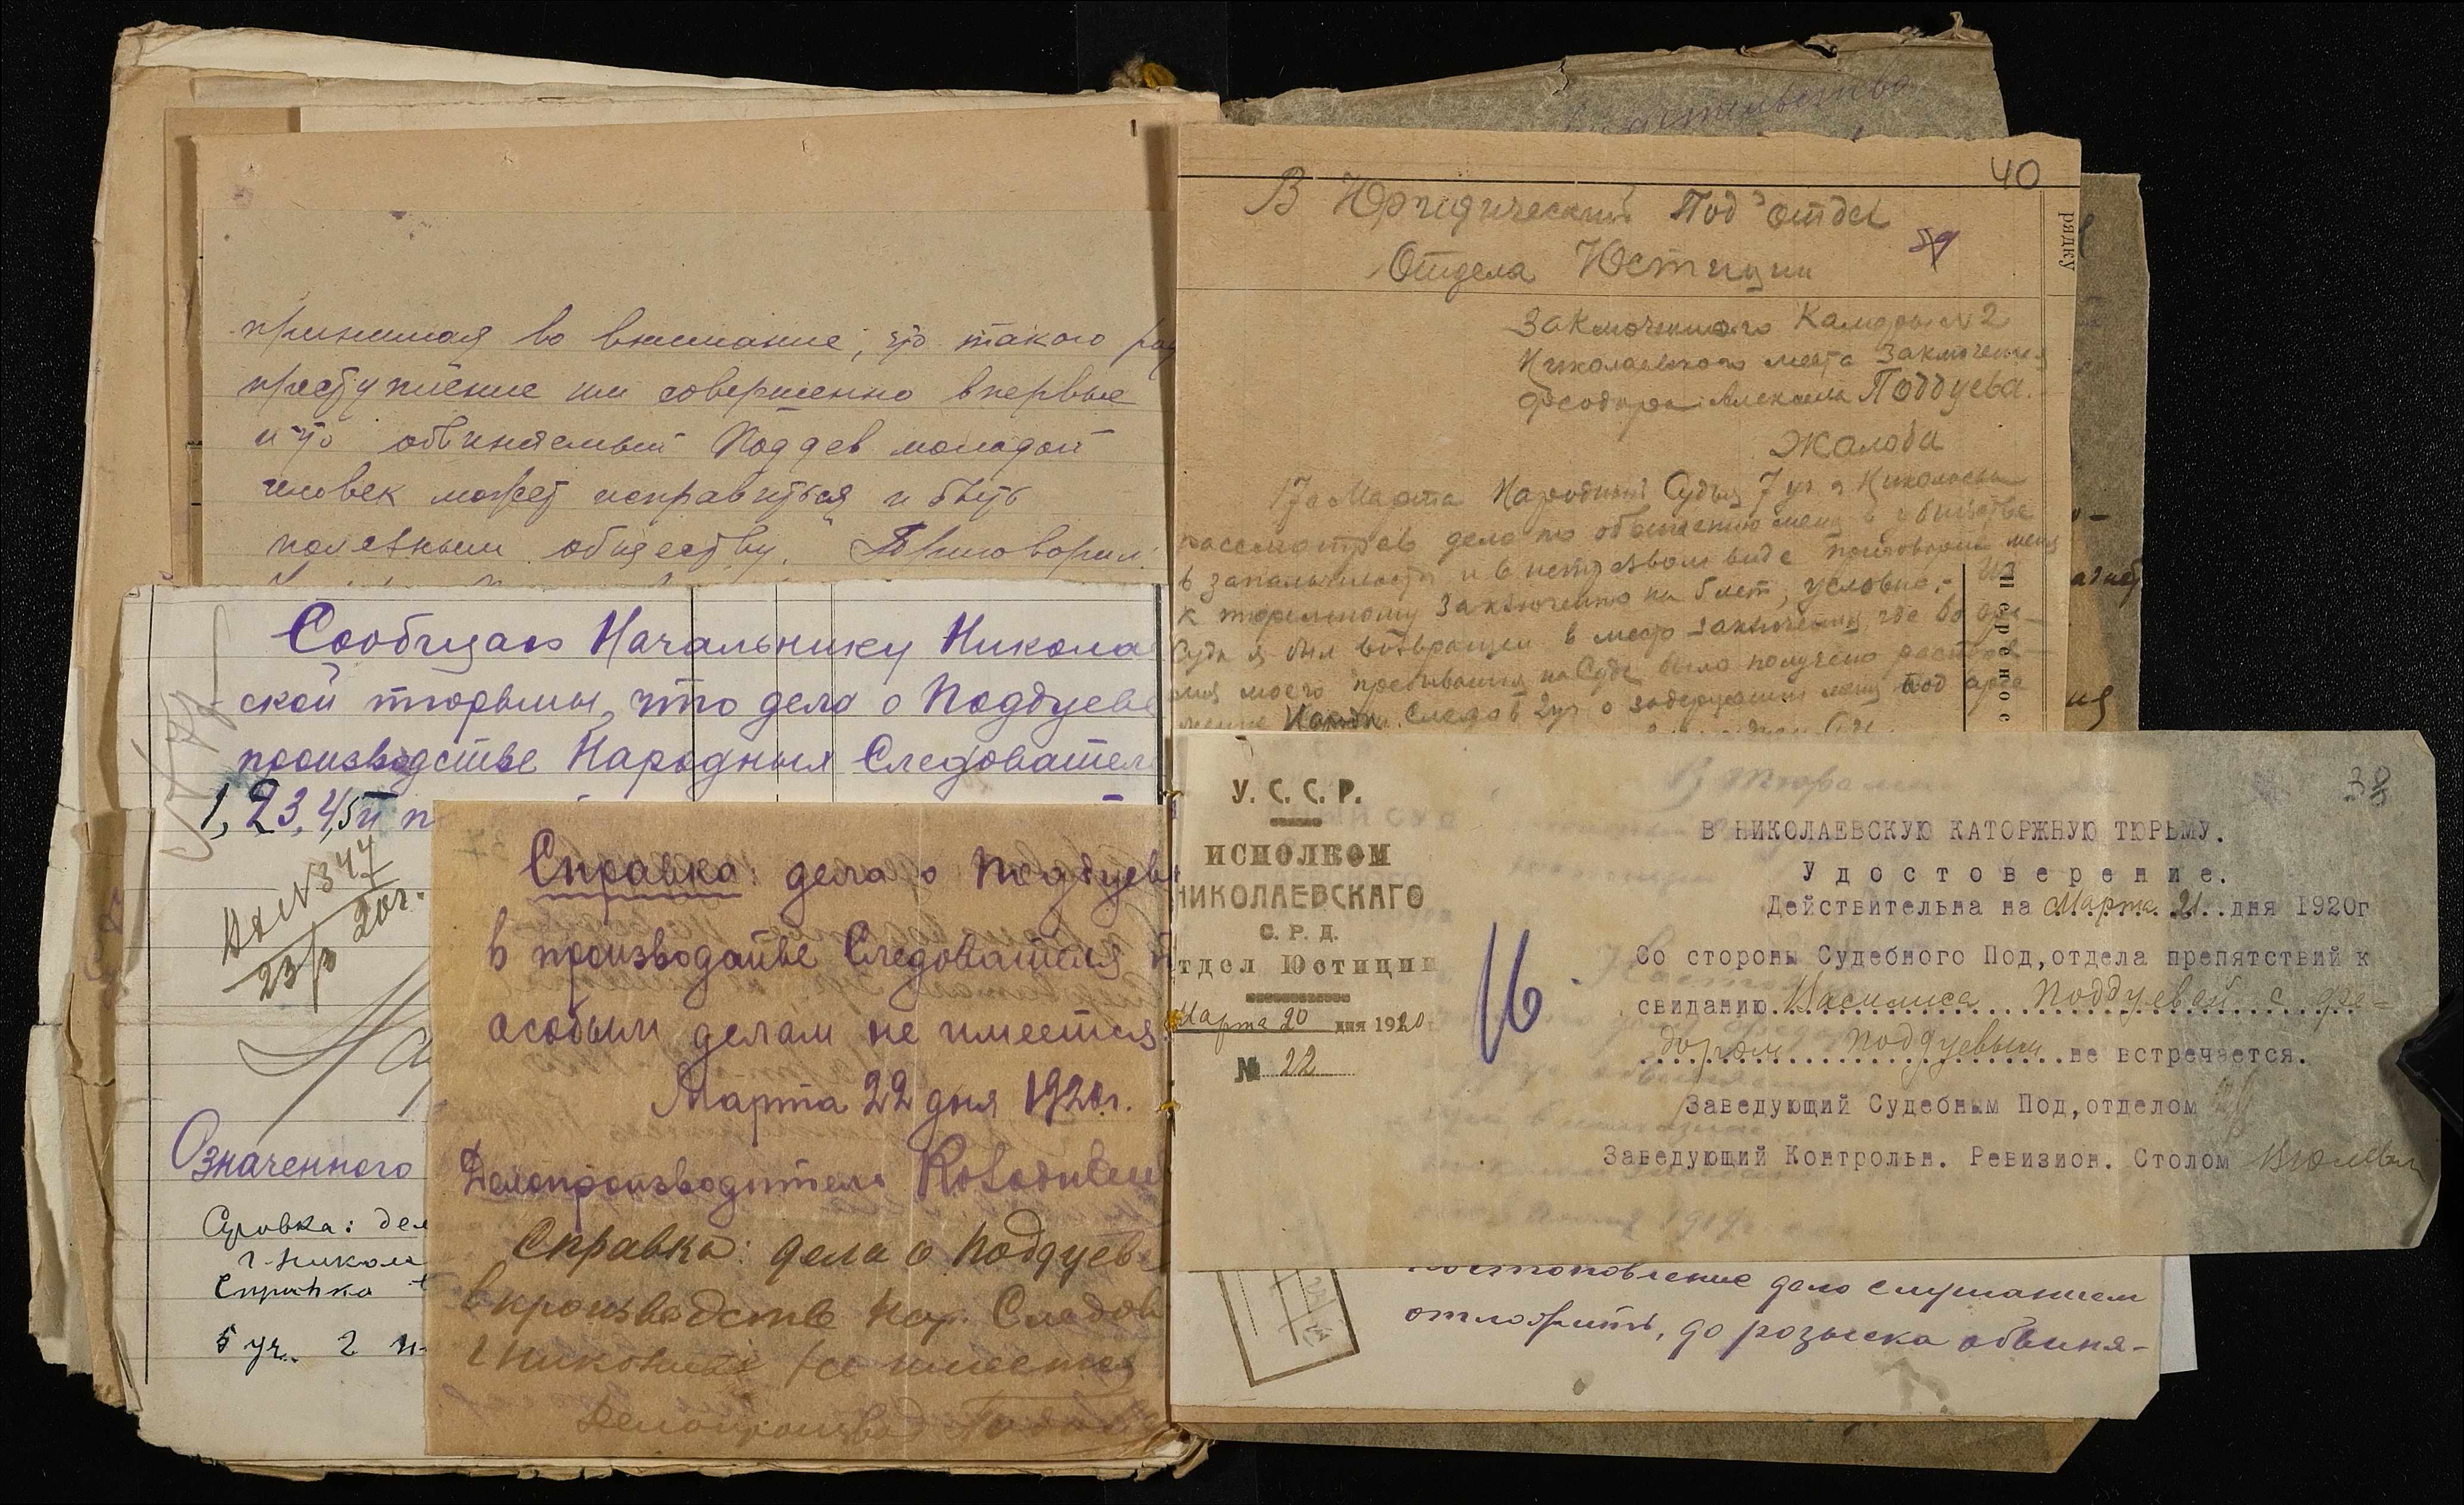 принимая во внимание, что такого
преступление им совершенно впервые
и что обвиняемый Поддев молодой
человек может исправиться и быть
полезным обществу. Приговорил:
Сообщаю Начальнику Никола
ской тюрьмы, что дела о Поддуеве
производстве Народных Следовател
1, 2, 3, 4, 5 и
Вх N 344
23/3 20г.
Означенного
Справка: дел
г. Никола
Справка
5 уч. г Н-
Справка: дела о Поддуев
в производстве Следователя
особым делам не имеется
Марта 22 дня 1920г.
Делопроизводитель
Справка: дела о Поддуев
в производстве Нар. Следов
г Николаеве не имеется
Делопроизвод
40
В Юридический Под'отдел
39
Отдела Юстиции
рядку
Заключенного Камеры N 2
Николаевского места Заключения
Феодора Поддуева.
Жалоба
17го Марта Народный Судья 7 уч г Николаева
рассмотрев дело по обвинению меня в убийстве
в запальчивости и в нетрезвом виде приговорил меня
к тюремному заключению на 5 лет, условно.- Из
Суда я был возвращен в место заключения, где во вре-
мя моего пребывания на Суде было получено распоря-
жение Народн. Следов 2уч о задержании меня под аре
Перенос
У. С. С. Р.
ИСПОЛКОМ
НИКОЛАЕВСКАГО
С. Р. Д.
тдел Юстиции
Марта 20 дня 1920
№ 22
16
38
В НИКОЛАЕВСКУЮ КАТОРЖНУЮ ТЮРЬМУ.
Удостоверение.
Действительна на Марта 21 дня 1920г
Со стороны Судебного Под,отдела препятствий к
свиданию Василиса Поддуевой с Фе-
дором Поддуевым не встречается.
Заведующий Судебным Под,отделом
Заведующий Контрольн. Ревизион. Столом
постановление дело слушанием
отложить, до розыска обвиня-